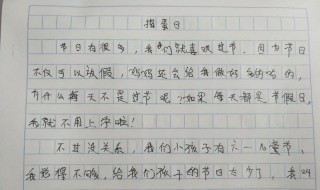 捣蛋日
节日有很多，我们就喜欢过节。因为节日
不仅可以放假，妈妈还会给我做好多好吃的。
为什么每天不是过节呢？如果每天都是节假日，
我就不用上学啦！
不过没关系，我们小孩子有六一儿童节。
我觉得不够，给我们孩子的节日太少了，我